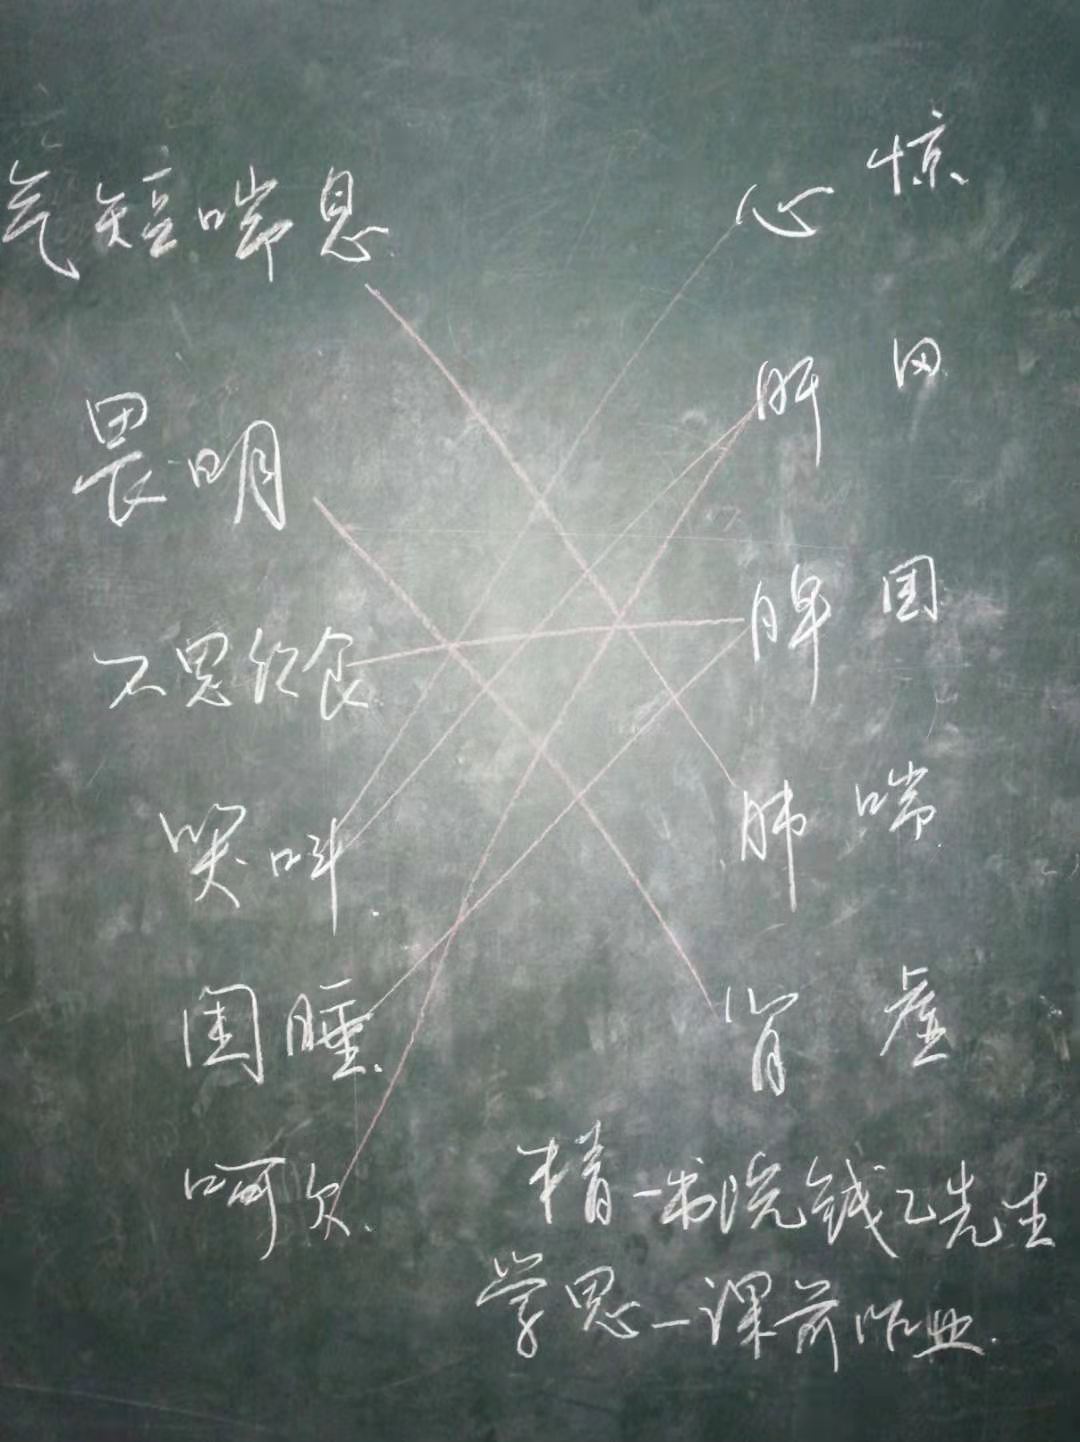 气短喘息 心 惊
畏明 肝 风
不思饮食 脾 困
哭叫 肺 喘
困睡 肾 虚
呵欠
精一书院钱乙先生
学思一课前作业